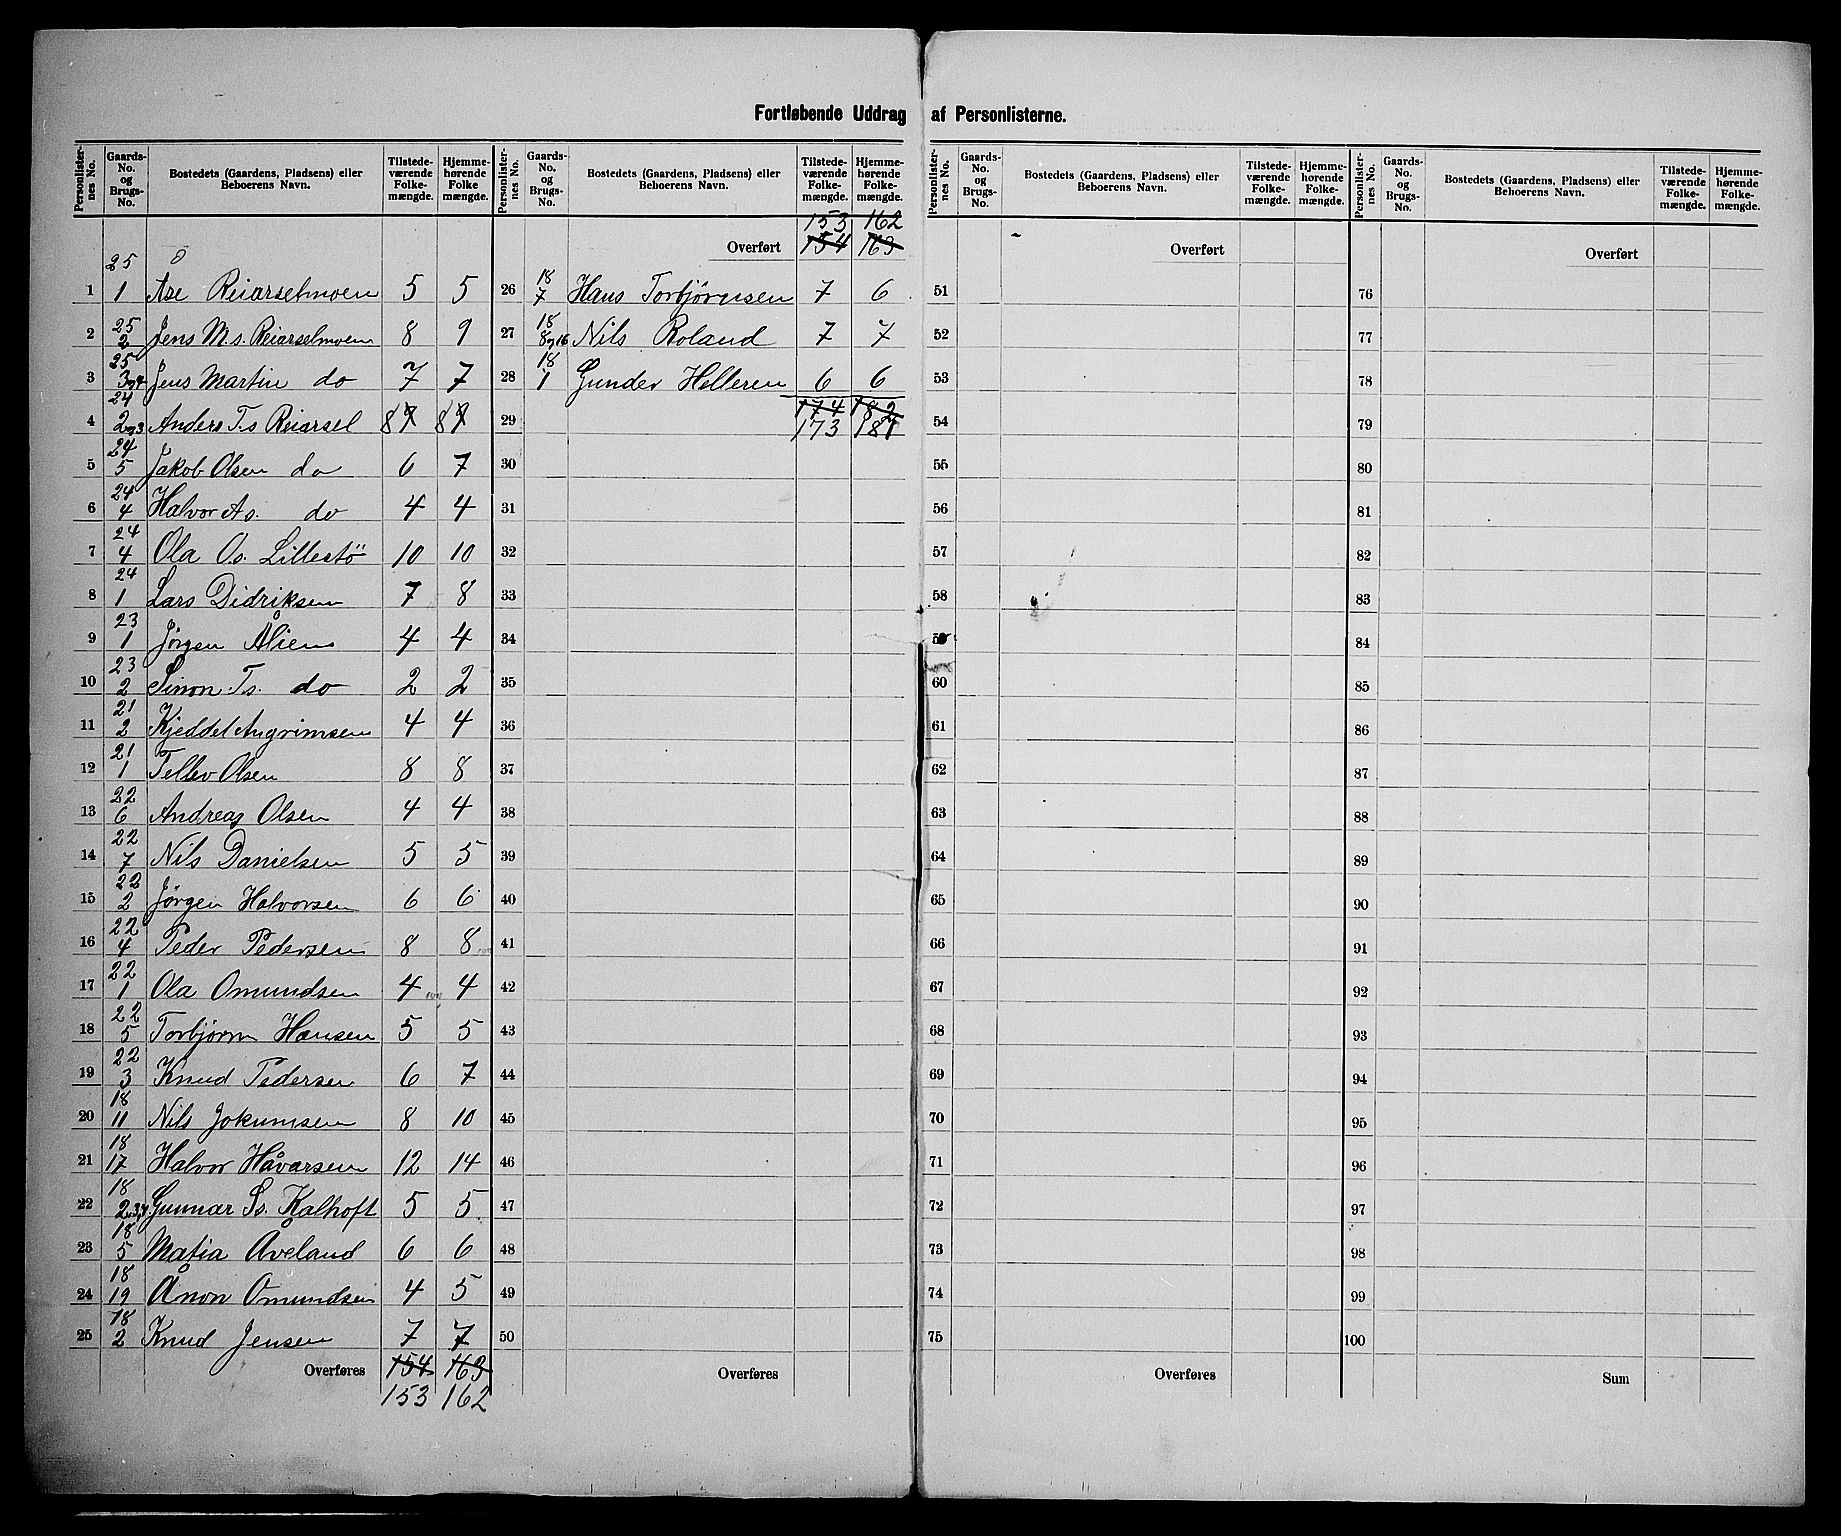 Fortløbende Uddrag af Personlisterne.
Personlister-nes No. | Gaards-No. og Brugs-No. | Bostedets (Gaardens, Pladsens) eller Beboerens Navn. | Tilstede-værende Folke-mængde. | Hjemme-hørende Folke mængde.
1 | 25 1 | Åse Reiarselmoen | 5 | 5
2 | 25 2 | Jens M.s. Reiarselmoen | 8 | 9
3 | 25 3 og 4 | Jens Martin do | 7 | 7
4 | 24 2 og 3 | Anders T.s Reiarsel | 8 | 8
5 | 24 5 | Jakob Olsen do | 6 | 7
6 | 24 4 | Halvor As. do | 4 | 4
7 | 24 4 | Ola Os. Lillestö | 10 | 10
8 | 24 1 | Lars Didriksen | 7 | 8
9 | 23 1 | Jørgen Åliens | 4 | 4
10 | 23 2 | Simon Ts. do | 2 | 2
11 | 21 2 | Kjeddel Angrimsen | 4 | 4
12 | 21 1 | Tellev Olsen | 8 | 8
13 | 22 6 | Andreas Olsen | 4 | 4
14 | 22 7 | Nils Danielsen | 5 | 5
15 | 22 2 | Jørgen Halvorsen | 6 | 6
16 | 22 4 | Peder Pedersen | 8 | 8
17 | 22 1 | Ola Omundsen | 4 | 4
18 | 22 5 | Torbjørn Hansen | 5 | 5
19 | 22 3 | Knud Pedersen | 6 | 7
20 | 18 11 | Nils Jokumsen | 8 | 10
21 | 18 17 | Halvor Håvarsen | 12 | 14
22 | 18 2,3,4 | Gunnar Ss. Kalhoft | 5 | 5
23 | 18 5 | Matia Åveland | 6 | 6
24 | 18 19 | Ånon Omundsen | 4 | 5
25 | 18 2 | Knud Jensen | 7 | 7
Overføres | 154 | 163
153 | 162
Personlister-nes No. | Gaards-No. og Brugs-No. | Bostedets (Gaardens, Pladsens) eller Beboerens Navn. | Tilstede-værende Folke-mængde. | Hjemme-hørende Folke-mængde.
153 | 162
Overført | 154 | 163
26 | 18 7 | Hans Torbjørnsen | 7 | 6
27 | 18 8 og 16 | Nils Roland | 7 | 7
28 | 18 1 | Gunder Helleren | 6 | 6
29 | 174 | 182
173 | 181
30
31
32
33
34
35
36
37
38
39
40
41
42
43
44
45
46
47
48
49
50
Overføres
Personlister-nes No. | Gaards-No. og Brugs-No. | Bostedets (Gaardens, Pladsens) eller Beboerens Navn. | Tilstede-værende Folke-mængde. | Hjemme-hørende Folke-mængde.
Overført
51
52
53
54
55
56
57
58
59
60
61
62
63
64
65
66
67
68
69
70
71
72
73
74
75
Overføres
Personlister-nes No. | Gaards-No. og Brugs-No. | Bostedets (Gaardens, Pladsens) eller Beboerens Navn. | Tilstede-værende Folke-mængde. | Hjemme-hørende Folke-mængde.
Overført
76
77
78
79
80
81
82
83
84
85
86
87
88
89
90
91
92
93
94
95
96
97
98
99
100
Sum